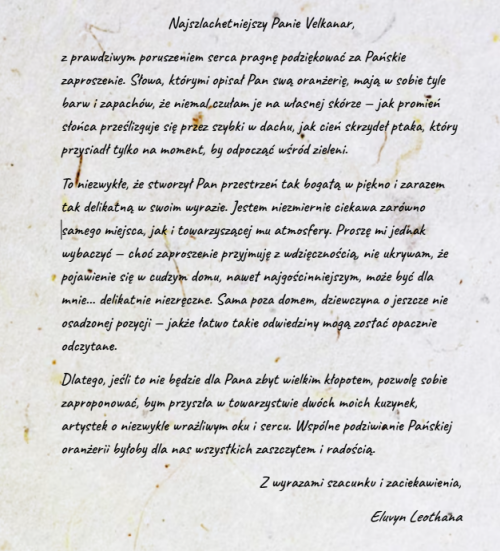 Najszlachetniejszy Panie Velkanar,
z prawdziwym poruszeniem serca pragnę podziękować za Pańskie
zaproszenie. Słowa, którymi opisał Pan swą oranżerię, mają w sobie tyle
barw i zapachów, że niemal czułam je na własnej skórze – jak promień
słońca prześlizguje się przez szybki w dachu, jak cień skrzydeł ptaka, który
przysiadł tylko na moment, by odpocząć wśród zieleni.
To niezwykłe, że stworzył Pan przestrzeń tak bogatą w piękno i zarazem
tak delikatną w swoim wyrazie. Jestem niezmiernie ciekawa zarówno
samego miejsca, jak i towarzyszącej mu atmosfery. Proszę mi jednak
wybaczyć – choć zaproszenie przyjmuję z wdzięcznością, nie ukrywam, że
pojawienie się w cudzym domu, nawet najgościnniejszym, może być dla
mnie... delikatnie niezręczne. Sama poza domem, dziewczyna o jeszcze nie
osadzonej pozycji – jakże łatwo takie odwiedziny mogą zostać opacznie
odczytane.
Dlatego, jeśli to nie będzie dla Pana zbyt wielkim kłopotem, pozwolę sobie
zaproponować, bym przyszła w towarzystwie dwóch moich kuzynek,
artystek o niezwykle wrażliwym oku i sercu. Wspólne podziwianie Pańskiej
oranżerii byłoby dla nas wszystkich zaszczytem i radością.
Z wyrazami szacunku i zaciekawienia,
Eluvyn Leothana